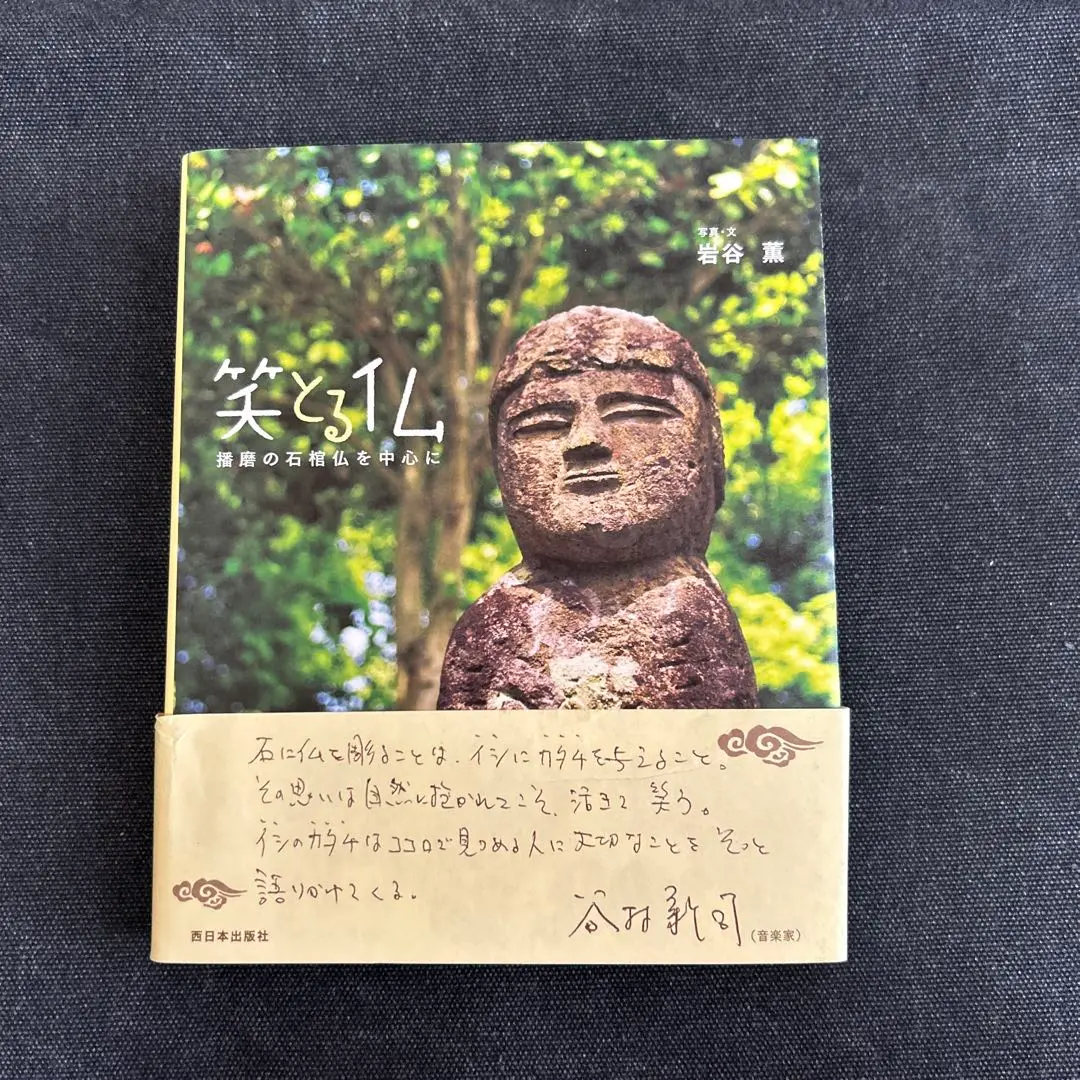 写真・文
岩谷 薫
笑とる仏
播磨の石棺仏を中心に
石に仏を彫ることは、イシにカタチを与えること。
その思いは自然に抱かれてこそ、活きて笑う。
イシのカタチはココロで見つめる人に大切なことをそっと
語りかけてくる。
谷村新司
(音楽家)
西日本出版社